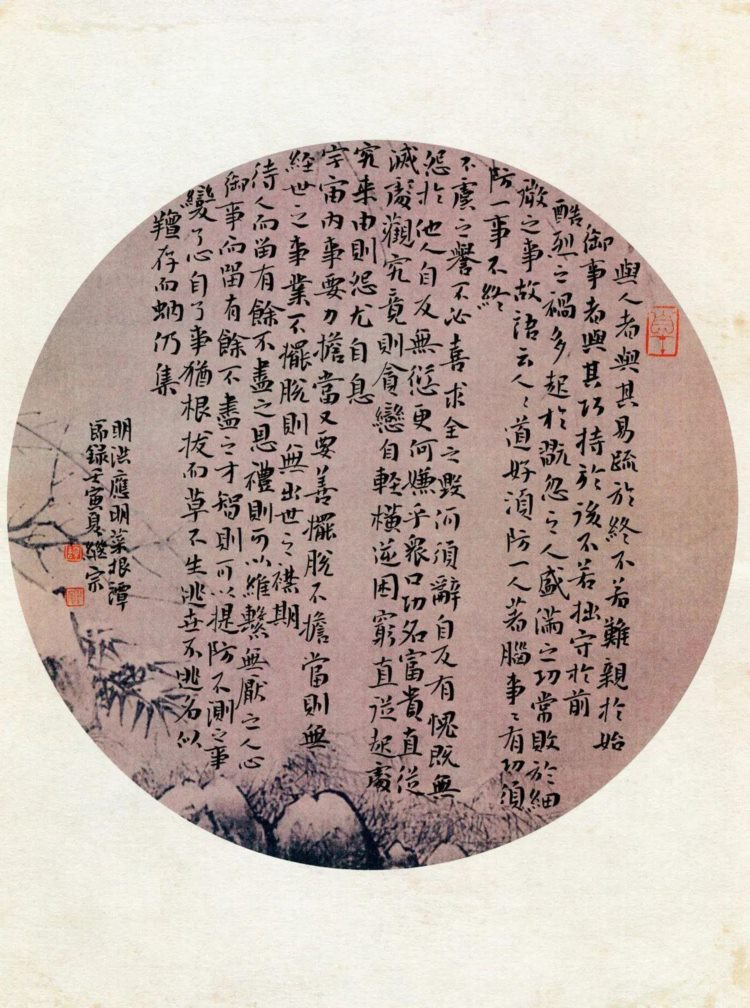 與人者與其易疏於終不若難親於始
御事者與其巧持於後不若拙守於前
酷烈之禍多起於翫忽之人盛滿之功常敗於細
微之事故語云人〻道好須防一人著腦事〻有功須
防一事不終
不虞之譽不必喜求全之毀何須辭自反有愧既無
怨於他人自反無愆更何嫌乎衆口功名富貴直從
滅處觀究竟則貪戀自輕橫逆困窮直從起處
究來由則怨尤自息
宇宙內事要力擔當又要善擺脫不擔當則無
經世之事業不擺脫則無出世之襟期
待人而留有餘不盡之恩禮則可以維繫無厭之人心
御事而留有餘不盡之才智則可以提防不測之事
變了心自了事猶根拔而草不生逃世不逃名似
羶存而蚋仍集
明洪應明菜根譚
節錄壬寅夏繼宗